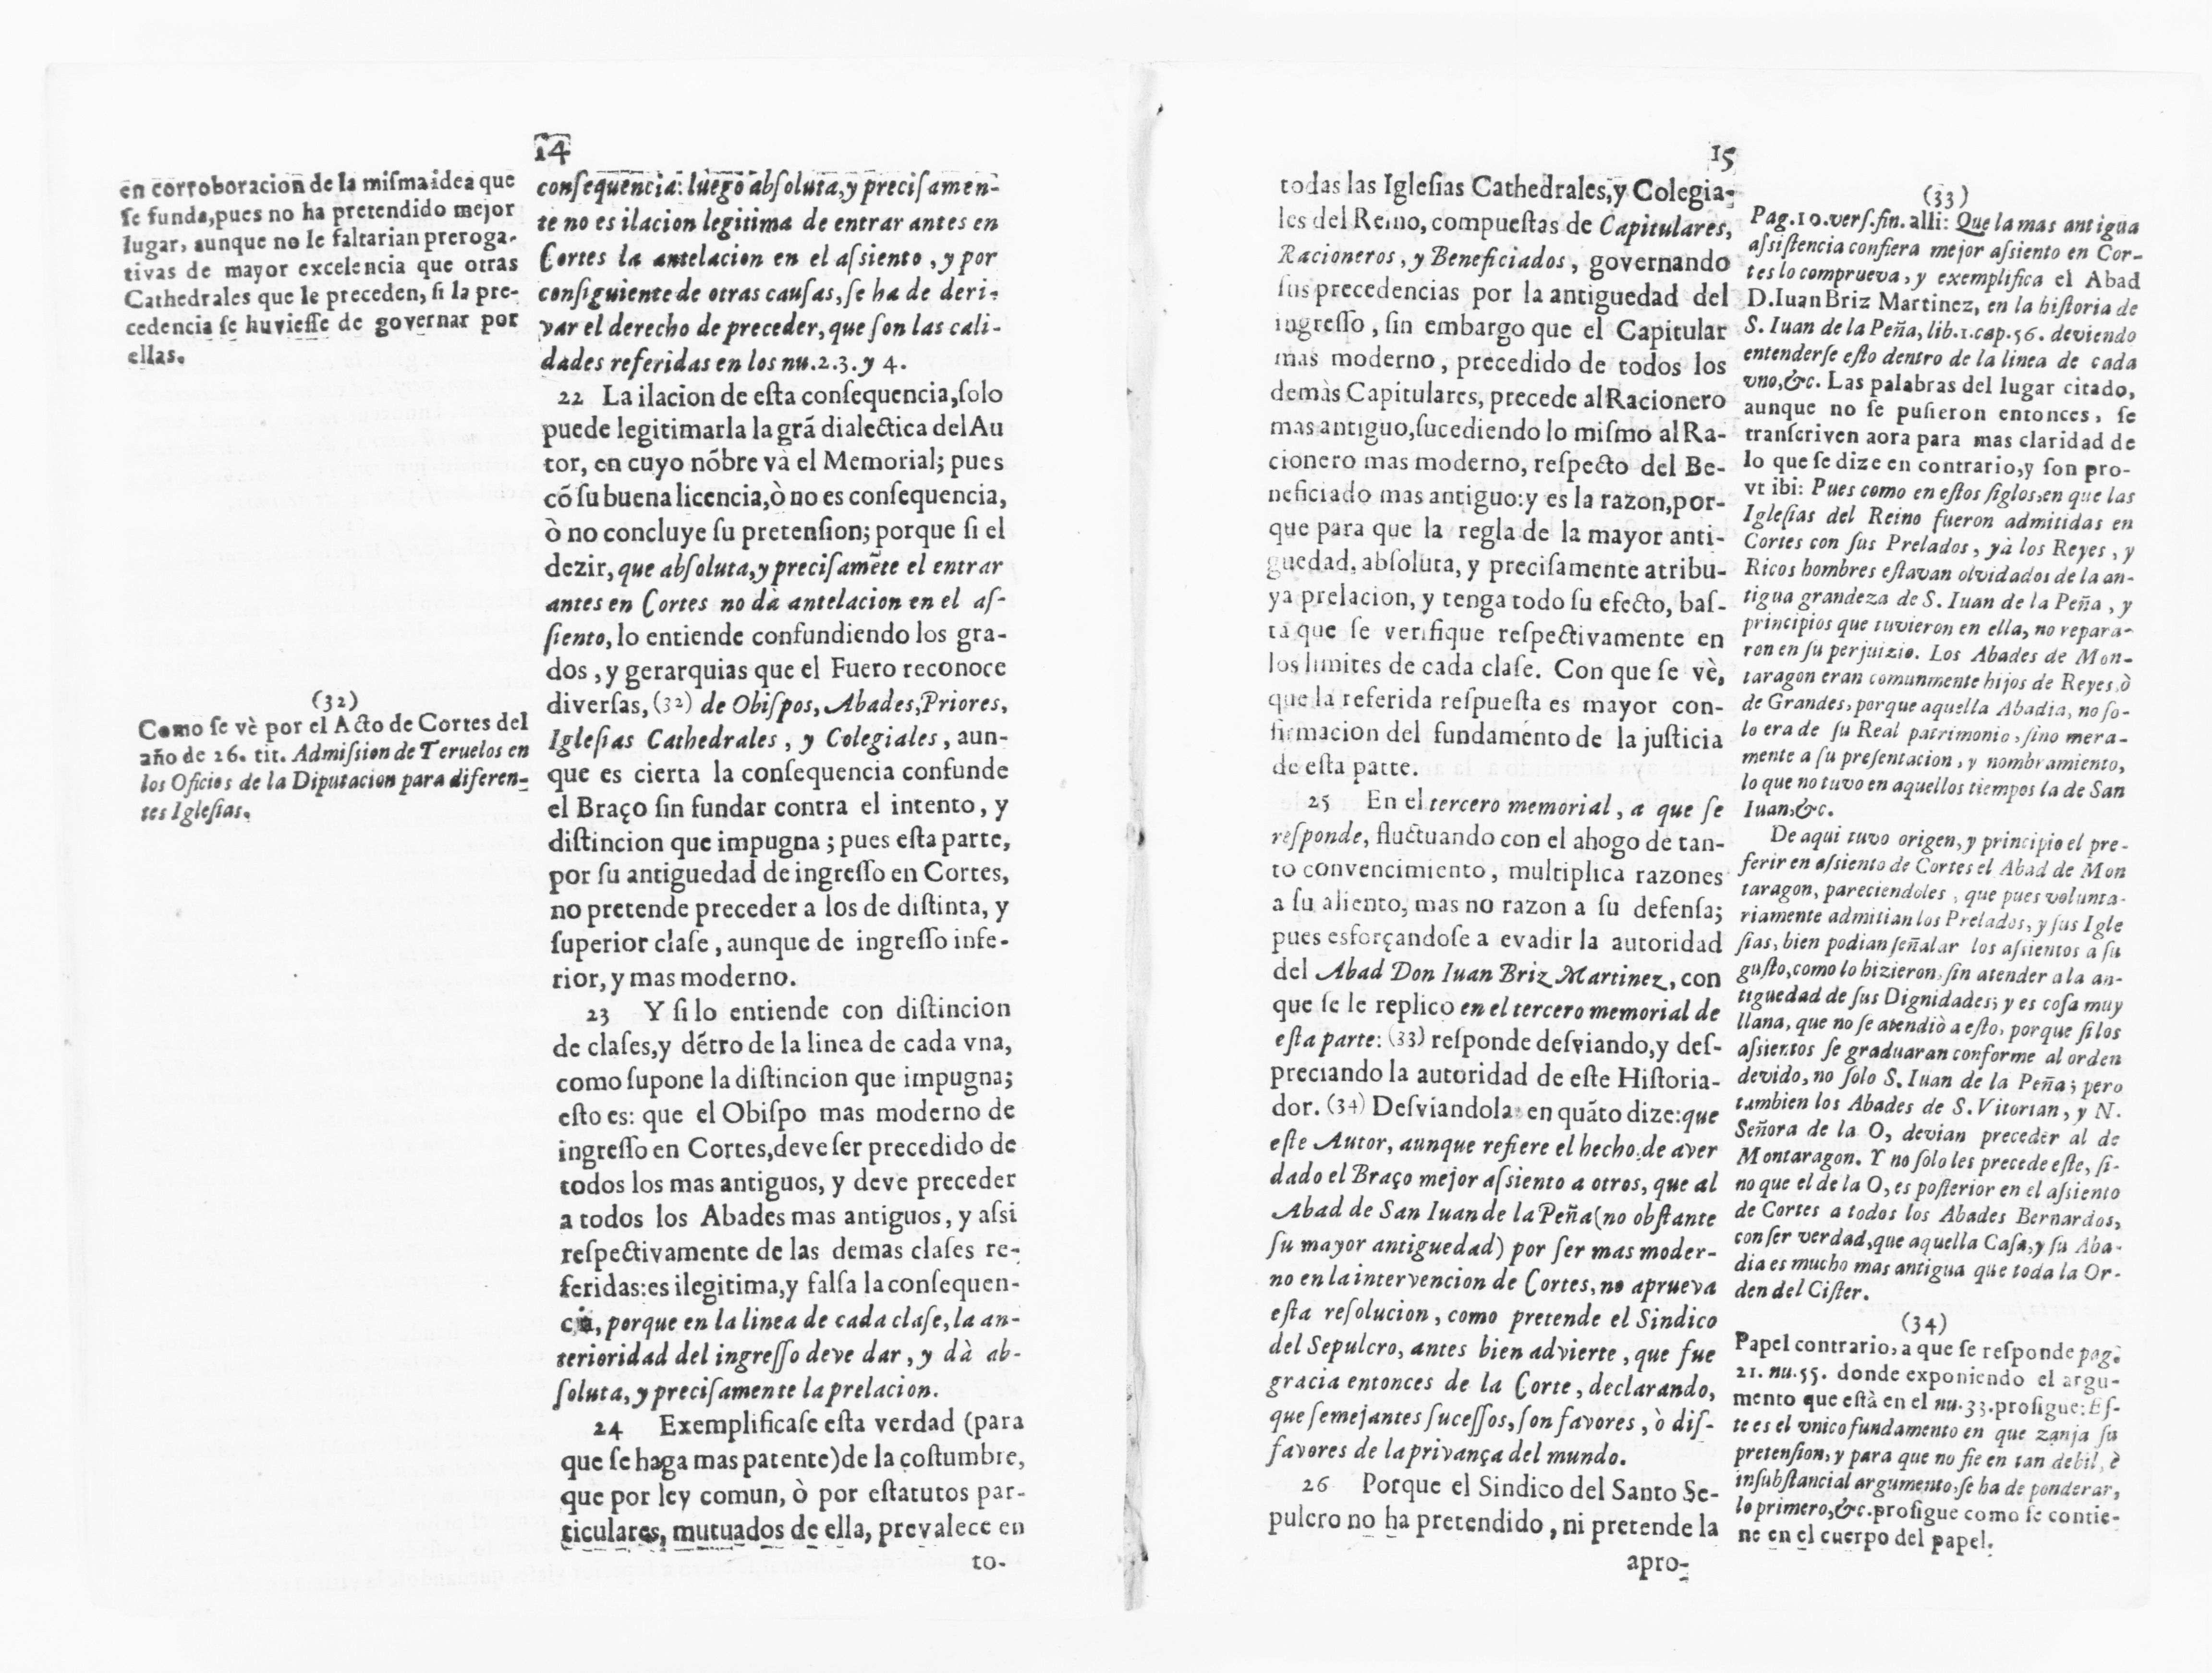 14
en corroboracion de la miſma idea que
ſe funda, pues no ha pretendido mejor
lugar, aunque no le faltarian preroga-
tivas de mayor excelencia que otras
Cathedrales que le preceden, ſi la pre-
cedencia ſe huvieſſe de governar por
ellas.
(32)
Como ſe vè por el Acto de Cortes del
año de 26. tit. Admiſsion de Teruelos en
los Oficios de la Diputacion para diferen-
tes Igleſias.
conſequencia: luego abſoluta, y preciſamen-
te no es ilacion legitima de entrar antes en
Cortes la antelacion en el aſsiento, y por
conſiguiente de otras cauſas, ſe ha de deri-
var el derecho de preceder, que ſon las cali-
dades referidas en los nu. 2. 3. y 4.
22 La ilacion de eſta conſequencia, ſolo
puede legitimarla la grã dialectica del Au
tor, en cuyo nõbre và el Memorial; pues
cõ ſu buena licencia, ò no es conſequencia,
ò no concluye ſu pretenſion; porque ſi el
dezir, que abſoluta, y preciſamẽte el entrar
antes en Cortes no dà antelacion en el aſ-
ſiento, lo entiende confundiendo los gra-
dos, y gerarquias que el Fuero reconoce
diverſas, (32) de Obiſpos, Abades, Priores,
Igleſias Cathedrales, y Colegiales, aun-
que es cierta la conſequencia confunde
el Braço ſin fundar contra el intento, y
diſtincion que impugna; pues eſta parte,
por ſu antiguedad de ingreſſo en Cortes,
no pretende preceder a los de diſtinta, y
ſuperior claſe, aunque de ingreſſo infe-
rior, y mas moderno.
23 Y ſi lo entiende con diſtincion
de claſes, y dẽtro de la linea de cada vna,
como ſupone la diſtincion que impugna;
eſto es: que el Obiſpo mas moderno de
ingreſſo en Cortes, deve ſer precedido de
todos los mas antiguos, y deve preceder
a todos los Abades mas antiguos, y aſsi
reſpectivamente de las demas claſes re-
feridas: es ilegitima, y falſa la conſequen-
cia, porque en la linea de cada claſe, la an-
terioridad del ingreſſo deve dar, y dà ab-
ſoluta, y preciſamente la prelacion.
24 Exemplificaſe eſta verdad (para
que ſe haga mas patente) de la coſtumbre,
que por ley comun, ò por eſtatutos par-
ticulares, mutuados de ella, prevalece en
to-
15
todas las Igleſias Cathedrales, y Colegia-
les del Reino, compueſtas de Capitulares,
Racioneros, y Beneficiados, governando
ſus precedencias por la antiguedad del
ingreſſo, ſin embargo que el Capitular
mas moderno, precedido de todos los
demàs Capitulares, precede al Racionero
mas antiguo, ſucediendo lo miſmo al Ra-
cionero mas moderno, reſpecto del Be-
neficiado mas antiguo: y es la razon, por-
que para que la regla de la mayor anti-
guedad, abſoluta, y preciſamente atribu-
ya prelacion, y tenga todo ſu efecto, baſ-
ta que ſe verifique reſpectivamente en
los limites de cada claſe. Con que ſe vè,
que la referida reſpueſta es mayor con-
firmacion del fundamento de la juſticia
de eſta parte.
25 En el tercero memorial, a que ſe
reſponde, fluctuando con el ahogo de tan-
to convencimiento, multiplica razones
a ſu aliento, mas no razon a ſu defenſa;
pues esforçandoſe a evadir la autoridad
del Abad Don Iuan Briz Martinez, con
que ſe le replicò en el tercero memorial de
eſta parte: (33) reſponde deſviando, y deſ-
preciando la autoridad de eſte Hiſtoria-
dor. (34) Deſviandola en quãto dize: que
eſte Autor, aunque refiere el hecho de aver
dado el Braço mejor aſsiento a otros, que al
Abad de San Iuan de la Peña (no obſtante
ſu mayor antiguedad) por ſer mas moder-
no en la intervencion de Cortes, no aprueva
eſta reſolucion, como pretende el Sindico
del Sepulcro, antes bien advierte, que fue
gracia entonces de la Corte, declarando,
que ſemejantes ſuceſſos, ſon favores, ò diſ-
favores de la privança del mundo.
26 Porque el Sindico del Santo Se-
pulcro no ha pretendido, ni pretende la
apro-
(33)
Pag. 10. verſ. fin. alli: Que la mas antigua
aſsiſtencia confiera mejor aſsiento en Cor-
tes lo comprueva, y exemplifica el Abad
D. Iuan Briz Martinez, en la hiſtoria de
S. Iuan de la Peña, lib. 1. cap. 56. deviendo
entenderſe eſto dentro de la linea de cada
vno, &c. Las palabras del lugar citado,
aunque no ſe puſieron entonces, ſe
tranſcriven aora para mas claridad de
lo que ſe dize en contrario, y ſon pro-
vt ibi: Pues como en eſtos ſiglos, en que las
Igleſias del Reino fueron admitidas en
Cortes con ſus Prelados, yà los Reyes, y
Ricos hombres eſtavan olvidados de la an-
tigua grandeza de S. Iuan de la Peña, y
principios que tuvieron en ella, no repara-
ron en ſu perjuizio. Los Abades de Mon-
taragon eran comunmente hijos de Reyes, ò
de Grandes, porque aquella Abadia, no ſo-
lo era de ſu Real patrimonio, ſino mera-
mente a ſu preſentacion, y nombramiento,
lo que no tuvo en aquellos tiempos la de San
Iuan, &c.
De aqui tuvo origen, y principio el pre-
ferir en aſsiento de Cortes el Abad de Mon
taragon, pareciendoles, que pues volunta-
riamente admitian los Prelados, y ſus Igle
ſias, bien podian ſeñalar los aſsientos a ſu
guſto, como lo hizieron, ſin atender a la an-
tiguedad de ſus Dignidades; y es coſa muy
llana, que no ſe atendiò a eſto, porque ſi los
aſsientos ſe graduaran conforme al orden
devido, no ſolo S. Iuan de la Peña; pero
tambien los Abades de S. Vitorian, y N.
Señora de la O, devian preceder al de
Montaragon. Y no ſolo les precede eſte, ſi-
no que el de la O, es poſterior en el aſsiento
de Cortes a todos los Abades Bernardos,
con ſer verdad, que aquella Caſa, y ſu Aba-
dia es mucho mas antigua que toda la Or-
den del Ciſter.
(34)
Papel contrario, a que ſe reſponde pag.
21. nu. 55. donde exponiendo el argu-
mento que eſtà en el nu. 33. proſigue: Eſ-
te es el vnico fundamento en que zanja ſu
pretenſion, y para que no fie en tan debil, è
inſubſtancial argumento, ſe ha de ponderar,
lo primero, &c. proſigue como ſe contie-
ne en el cuerpo del papel.